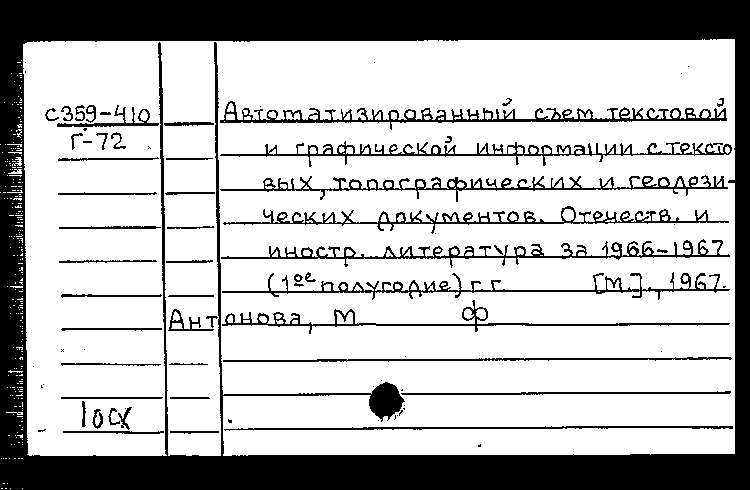 с359-410 Автоматизированный съем текстовой
Г-72 и графической информации с тексто-
вых, топографических и геодези-
ческих документов. Отечеств. и
иностр. литература за 1966-1967
(1ое полугодие) г.г. [М.]., 1967.
Антонова, М. Ф